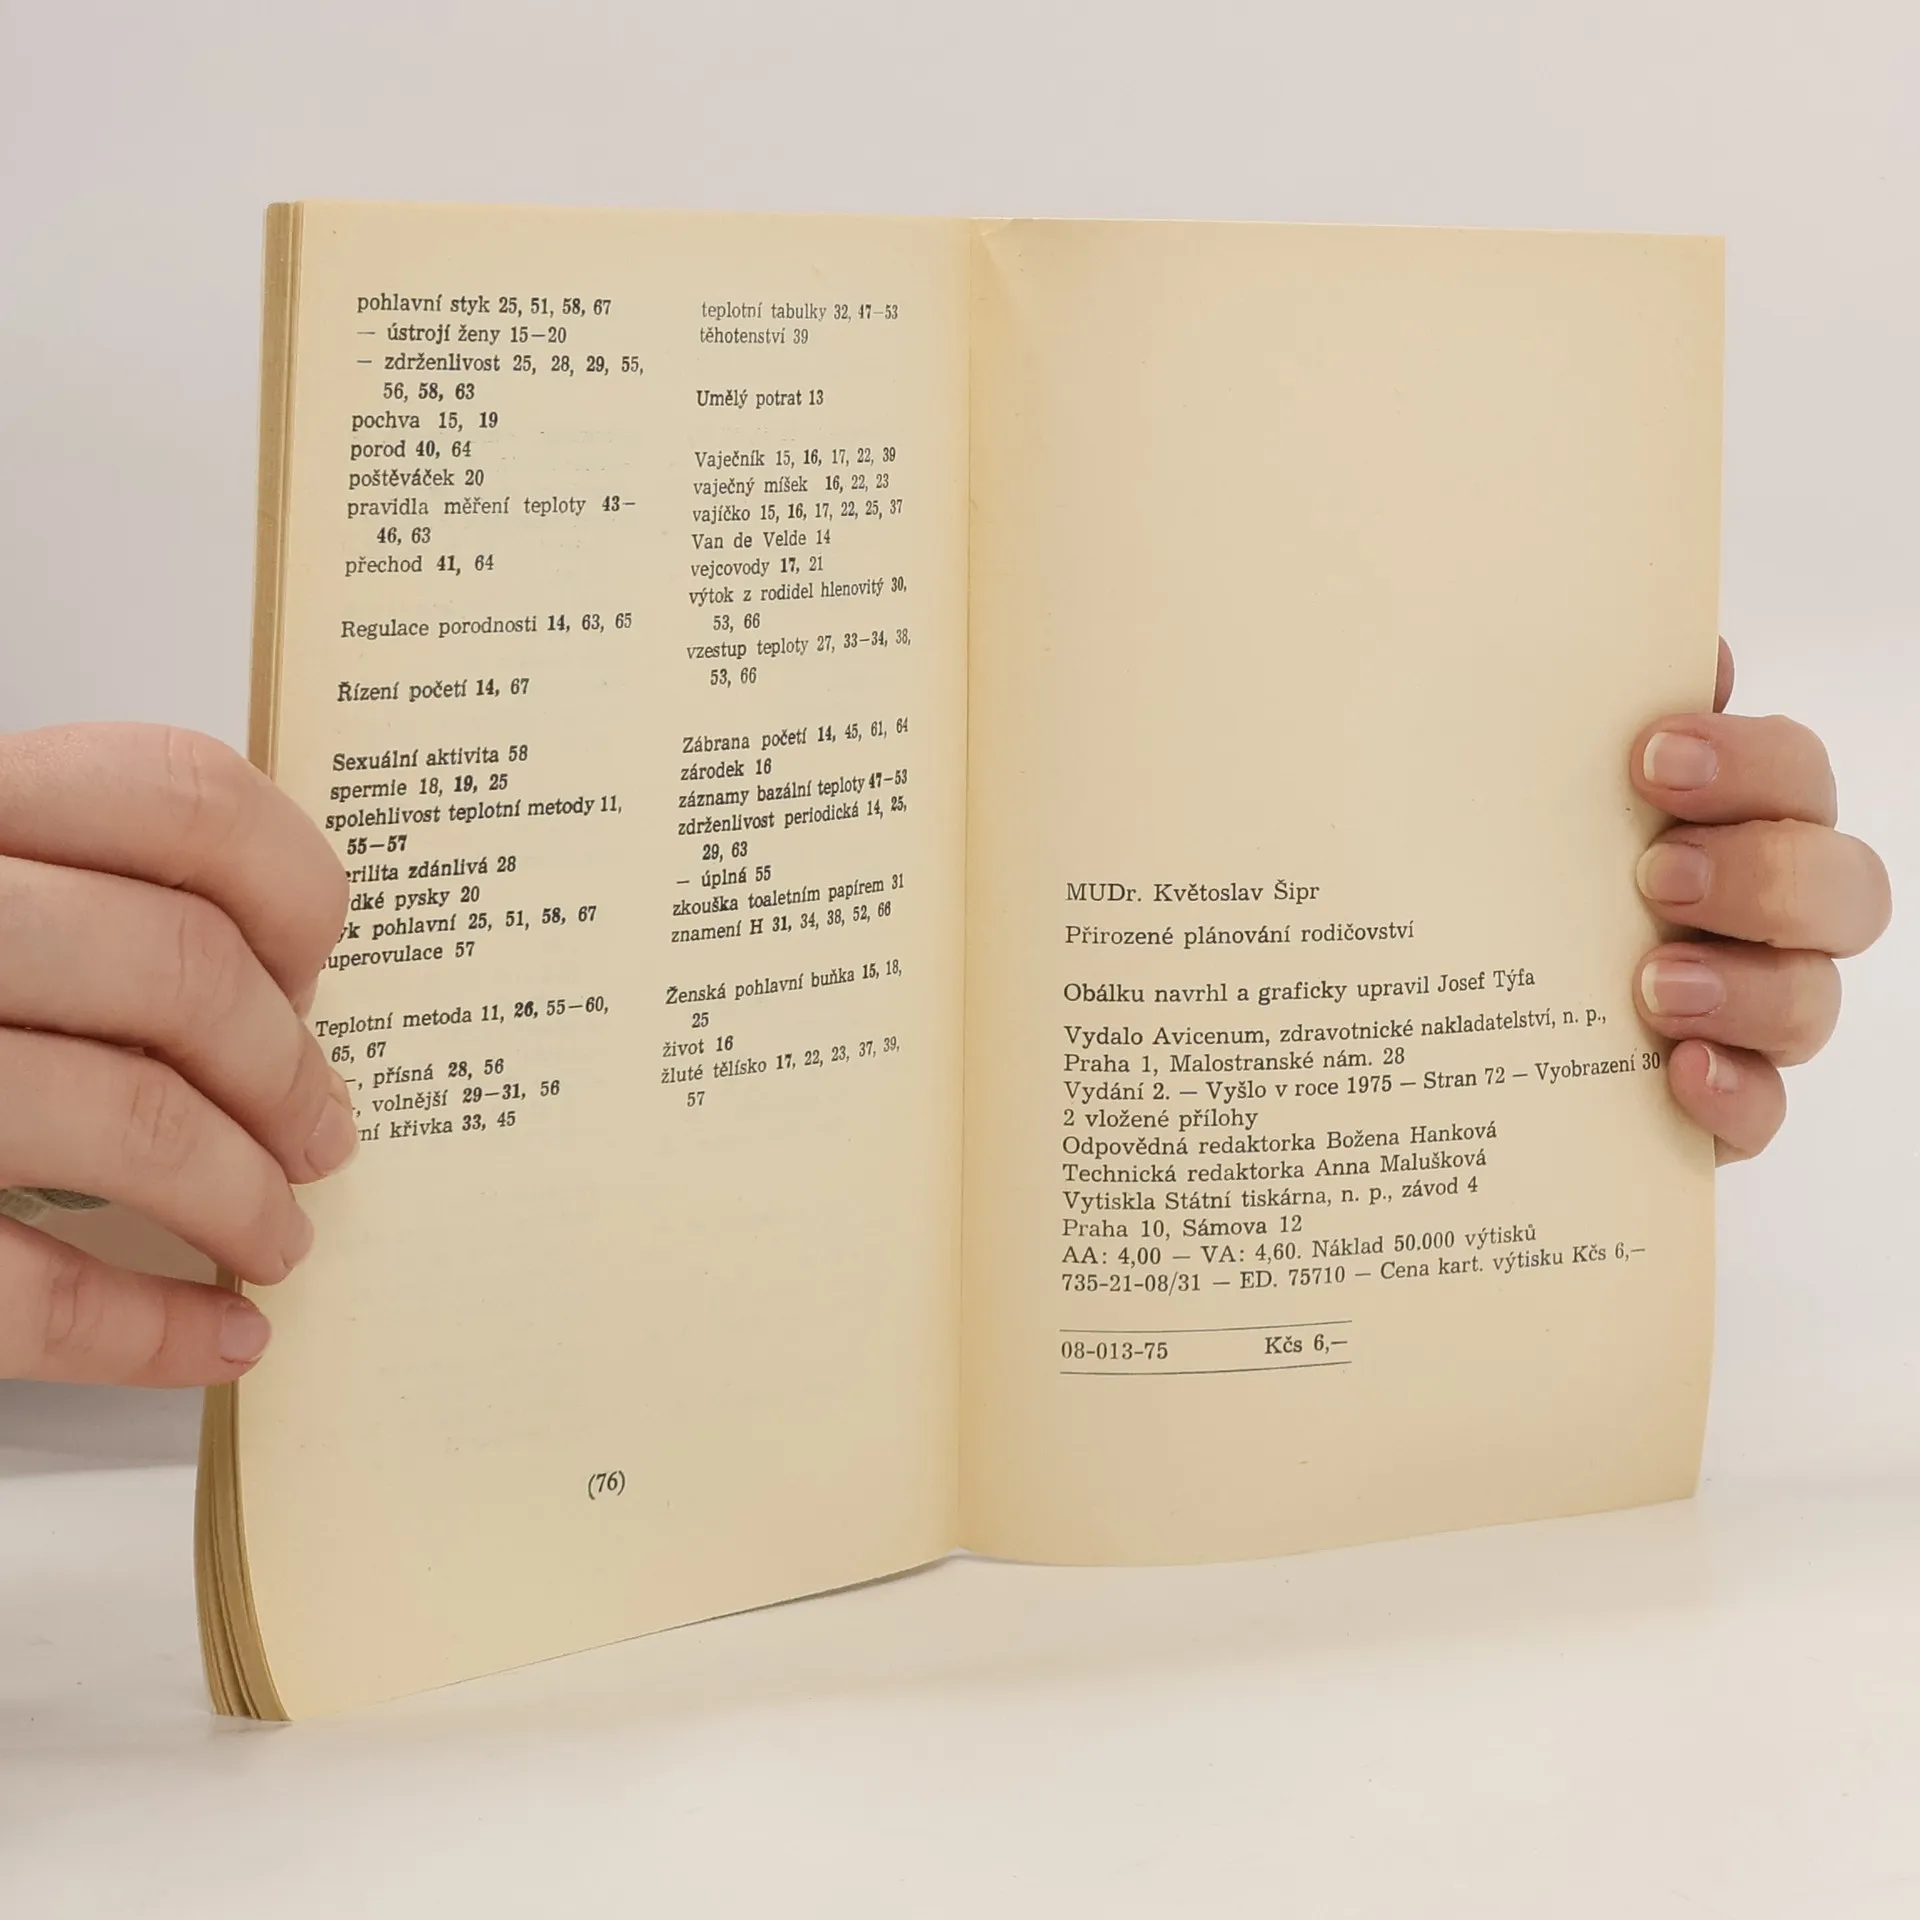 pohlavní styk 25, 51, 58, 67
— ústrojí ženy 15—20
— zdrženlivost 25, 28, 29, 55,
56, 58, 63
pochva 15, 19
porod 40, 64
poštěváček 20
pravidla měření teploty 43—
46, 63
přechod 41, 64
Regulace porodnosti 14, 63, 65
Řízení početí 14, 67
Sexuální aktivita 58
spermie 18, 19, 25
spolehlivost teplotní metody 11,
55—57
zdánlivá 28
pysky 20
pohlavní 25, 51, 58, 67
superovulace 57
Teplotní metoda 11, 26, 55—60,
65, 67
—, přísná 28, 56
, volnější 29—31, 56
křivka 33, 45
(76)
teplotní tabulky 32, 47—53
těhotenství 39
Umělý potrat 13
Vaječník 15, 16, 17, 22, 39
vaječný míšek 16, 22, 23
vajíčko 15, 16, 17, 22, 25, 37
Van de Velde 14
vejcovody 17, 21
výtok z rodidel hlenovitý 30,
53, 66
vzestup teploty 27, 33—34, 38,
53, 66
Zábrana početí 14, 45, 61, 64
zárodek 16
záznamy bazální teploty 47—53
zdrženlivost periodická 14, 25,
29, 63
— úplná 55
zkouška toaletním papírem 31
znamení H 31, 34, 38, 52, 66
Ženská pohlavní buňka 15, 18,
25
život 16
žluté tělísko 17, 22, 23, 37, 39,
57
MUDr. Květoslav Šipr
Přirozené plánování rodičovství
Obálku navrhl a graficky upravil Josef Týfa
Vydalo Avicenum, zdravotnické nakladatelství, n. p.,
Praha 1, Malostranské nám. 28
Vydání 2. — Vyšlo v roce 1975 — Stran 72 — Vyobrazení 30
2 vložené přílohy
Odpovědná redaktorka Božena Hanková
Technická redaktorka Anna Malušková
Vytiskla Státní tiskárna, n. p., závod 4
Praha 10, Sámova 12
AA: 4,00 — VA: 4,60. Náklad 50.000 výtisků
735-21-08/31 — ED. 75710 — Cena kart. výtisku Kčs 6,—
08-013-75 Kčs 6,—